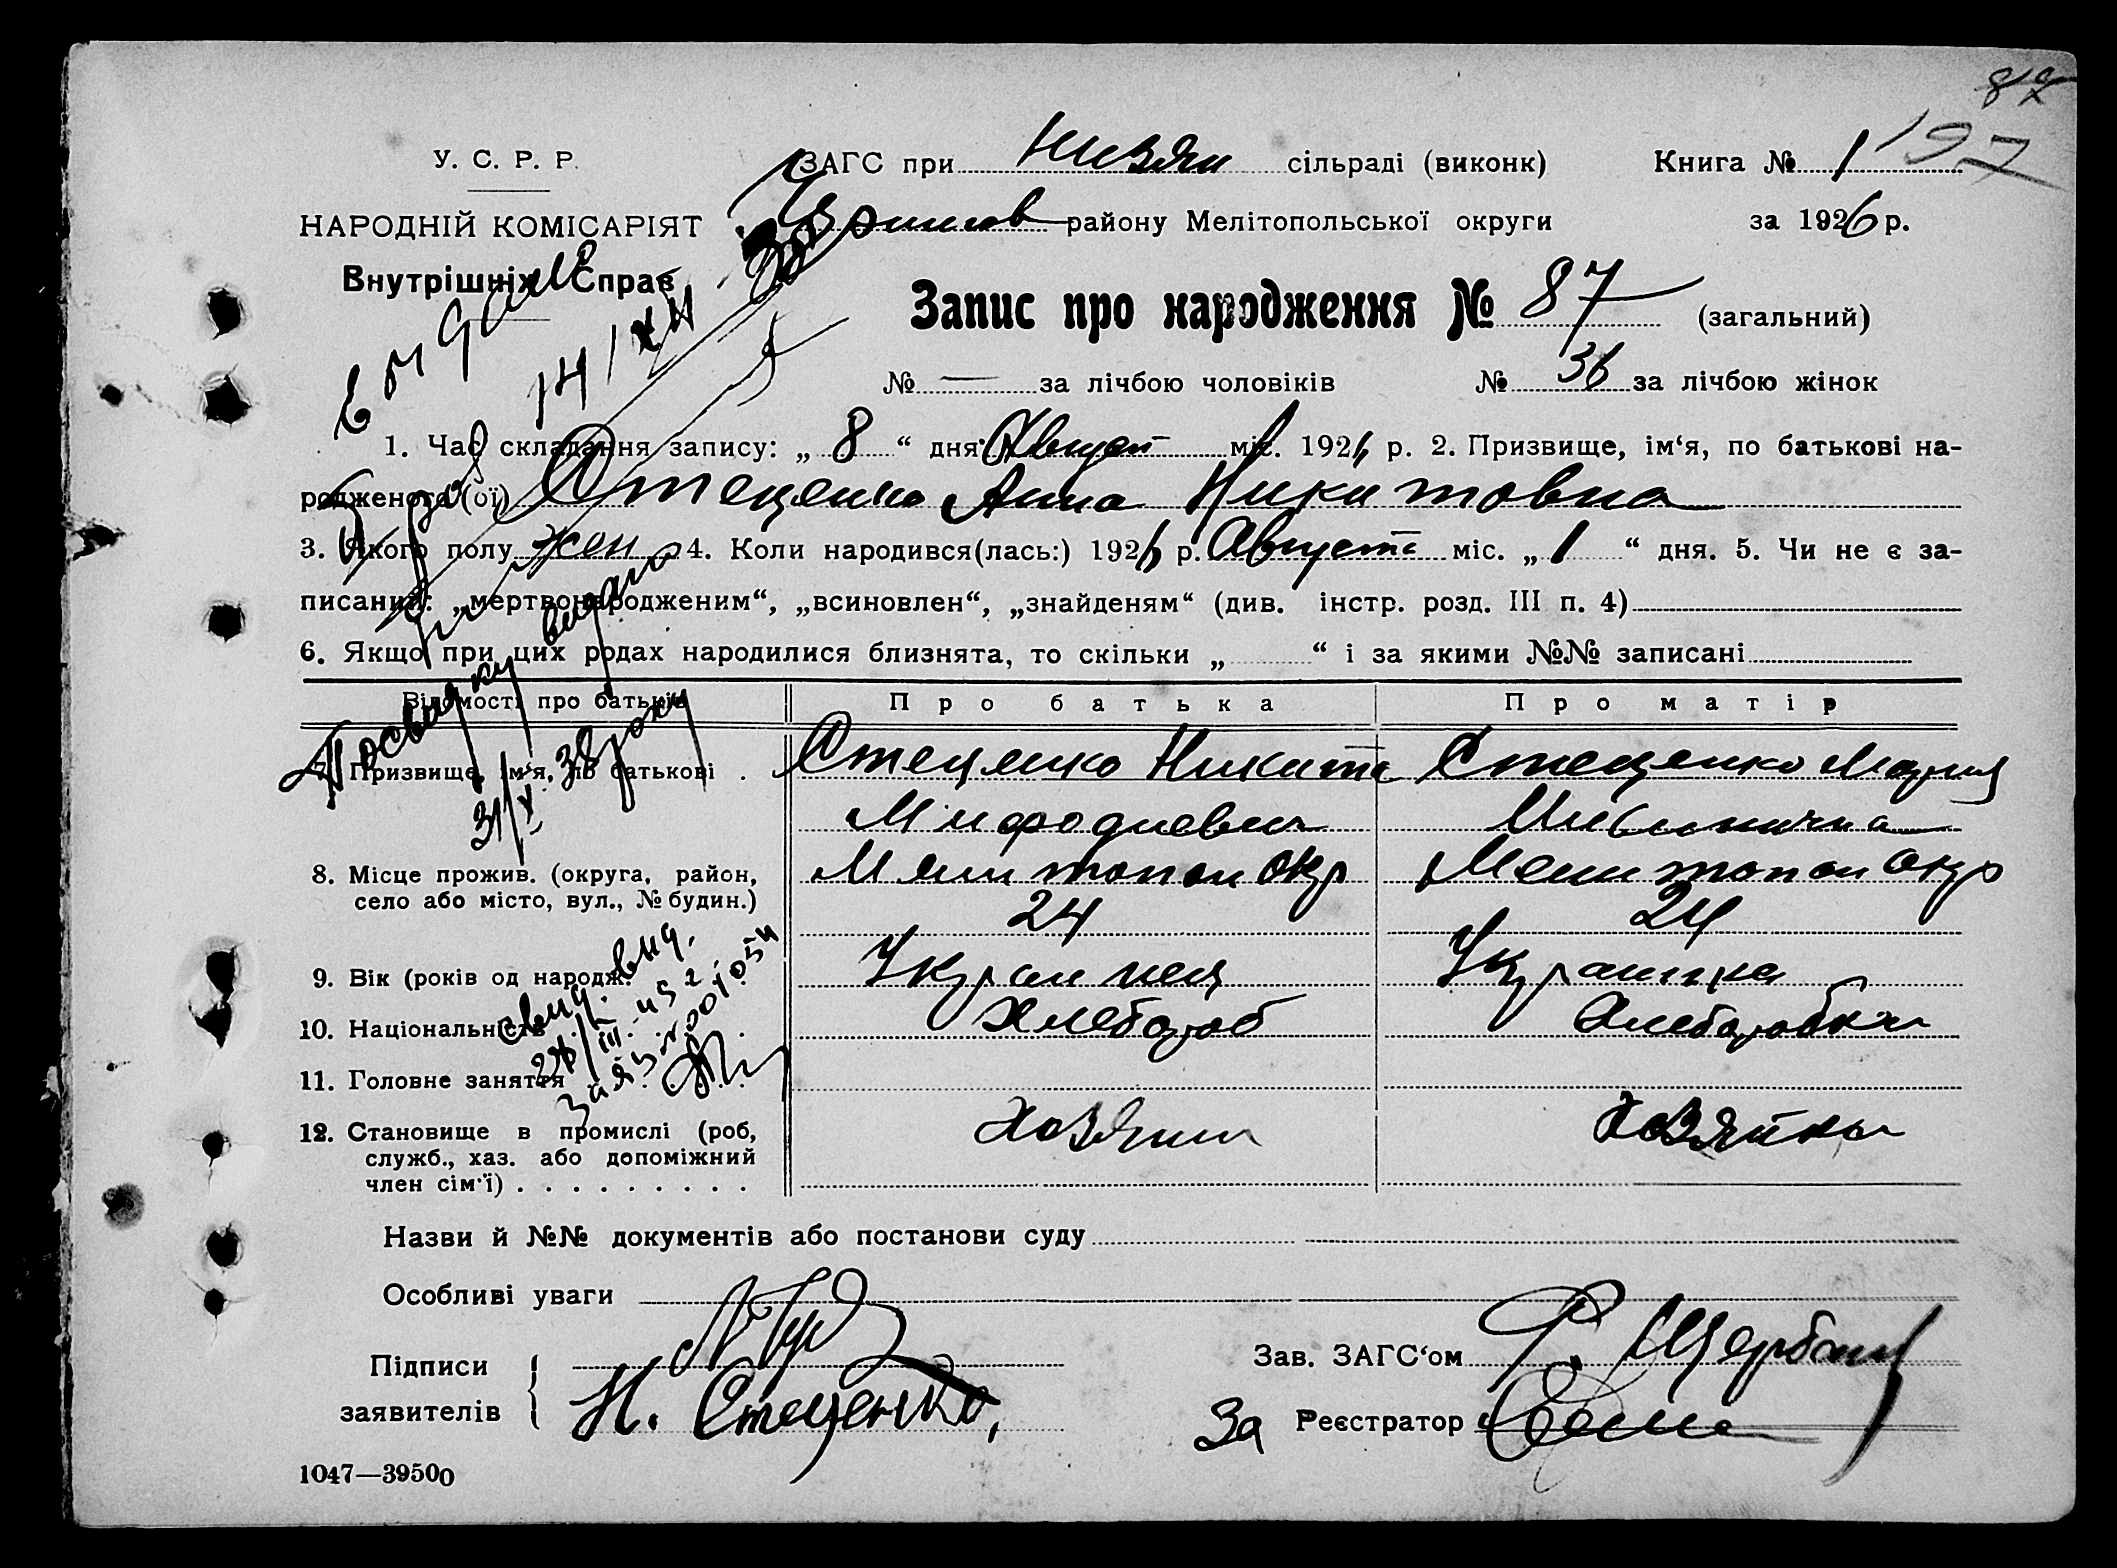 87
197
У. С. Р. Р.
ЗАГС при Низяни сільраді (виконк)
Книга № 1
НАРОДНІЙ КОМІСАРІЯТ
району Мелітопольської округи
за 1926 р.
Внутрішніх Справ
Запис про народження № 87 (загальний)
№ — за лічбою чоловіків
№ 36 за лічбою жінок
1. Час складання запису: „ 8 “ дня Август міс. 1926 р. 2. Призвище, ім‘я, по батькові на-
родженого (ої) Стеценко Анна Никитовна
3. Якого полу жен 4. Коли народився(лась:) 1926 р. Августа міс. „ 1 “ дня. 5. Чи не є за-
писаний: „мертвонародженим“, „всиновлен“, „знайденям“ (див. інстр. розд. III п. 4)
6. Якщо при цих родах народилися близнята, то скільки „ “ і за якими №№ записані
Відомості про батьків
Про батька
Про матір
7. Призвище, ім‘я, по батькові .
Стеценко Никита
Стеценко Мария
Мифодиевич
8. Місце прожив. (округа, район,
село або місто, вул., № будин.)
Мелитопол окр
Мелитопол окр
24
24
9. Вік (років од народж.
Украинец
Украинка
10. Національність
Хлебороб
Хлеборобка
11. Головне заняття
12. Становище в промислі (роб,
служб., хаз. або допоміжний
член сім‘ї) . . . . . . . . .
Хозяин
Хозяйка
Посвидку видано
31/X 38 року
свид. вид.
Назви й №№ документів або постанови суду
Особливі уваги
Підписи
заявителів
Н. Стеценко,
Зав. ЗАГС‘ом Щербань
За Реєстратор
1047—39500